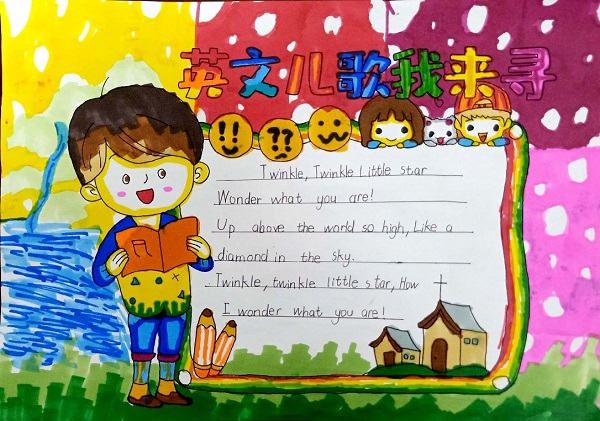 英文儿歌我来寻
Twinkle, Twinkle Little star
Wonder what you are!
Up above the world so high, Like a
diamond in the sky.
Twinkle, twinkle little star, How
I wonder what you are!